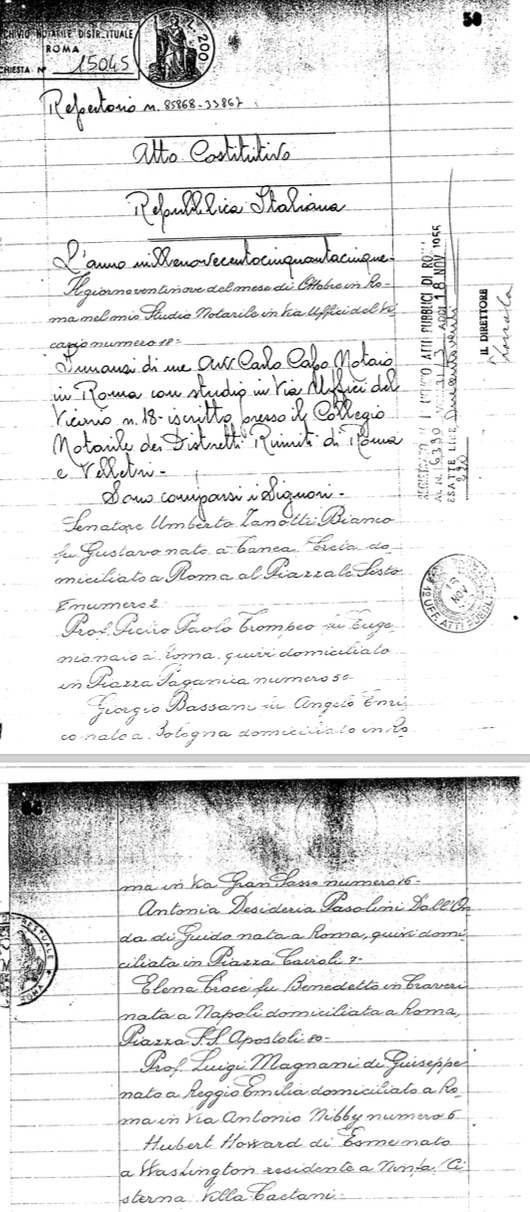 50
ARCHIVIO NOTARILE DISTRETTUALE
ROMA
L. 200
CHIESTA N° 15045
Repertorio n. 85868-33867
Atto Costitutivo
Repubblica Italiana
L'anno millenovecentocinquantacinque-
Il giorno ventinove del mese di Ottobre in Ro-
ma nel mio Studio Notarile in Via Uffici del Vi-
cario numero 18-
Innanzi di me Avv Carlo Capo Notaio
in Roma con studio in Via Uffici del
Vicario n. 18- iscritto presso il Collegio
Notarile dei Distretti Riuniti di Roma
e Velletri-
Sono comparsi i Signori-
Senatore Umberto Zanotti Bianco
fu Gustavo nato a Canea Creta do-
miciliato a Roma al Piazzale Sisto
numero 2
Prof. Pietro Paolo Trompeo fu Euge-
nio nato a Roma, quivi domiciliato
in Piazza Paganica numero 50-
Giorgio Bassani fu Angelo Enri-
co nato a Bologna domiciliato in Ro-
ATTI PUBBLICI DI
ADDI 18 NOV 1955
AL N. 6390
ESATTE LIRE
IL DIRETTORE
18
NOV
ATTI PUBBL
ma in Via Gran Sasso numero 16-
Antonia Desideria Pasolini Dall'On-
da di Guido nata a Roma, quivi domi-
ciliata in Piazza Cairoli 7-
Elena Croce fu Benedetto in Craveri
nata a Napoli domiciliata a Roma,
Piazza S.S. Apostoli 80-
Prof. Luigi Magnani di Giuseppe
nato a Reggio Emilia domiciliato a Ro-
ma in Via Antonio Nibby numero 6
Hubert Howard di Esme nato
a Washington residente a Ninfa/Ci
sterna Villa Caetani-
ROMA